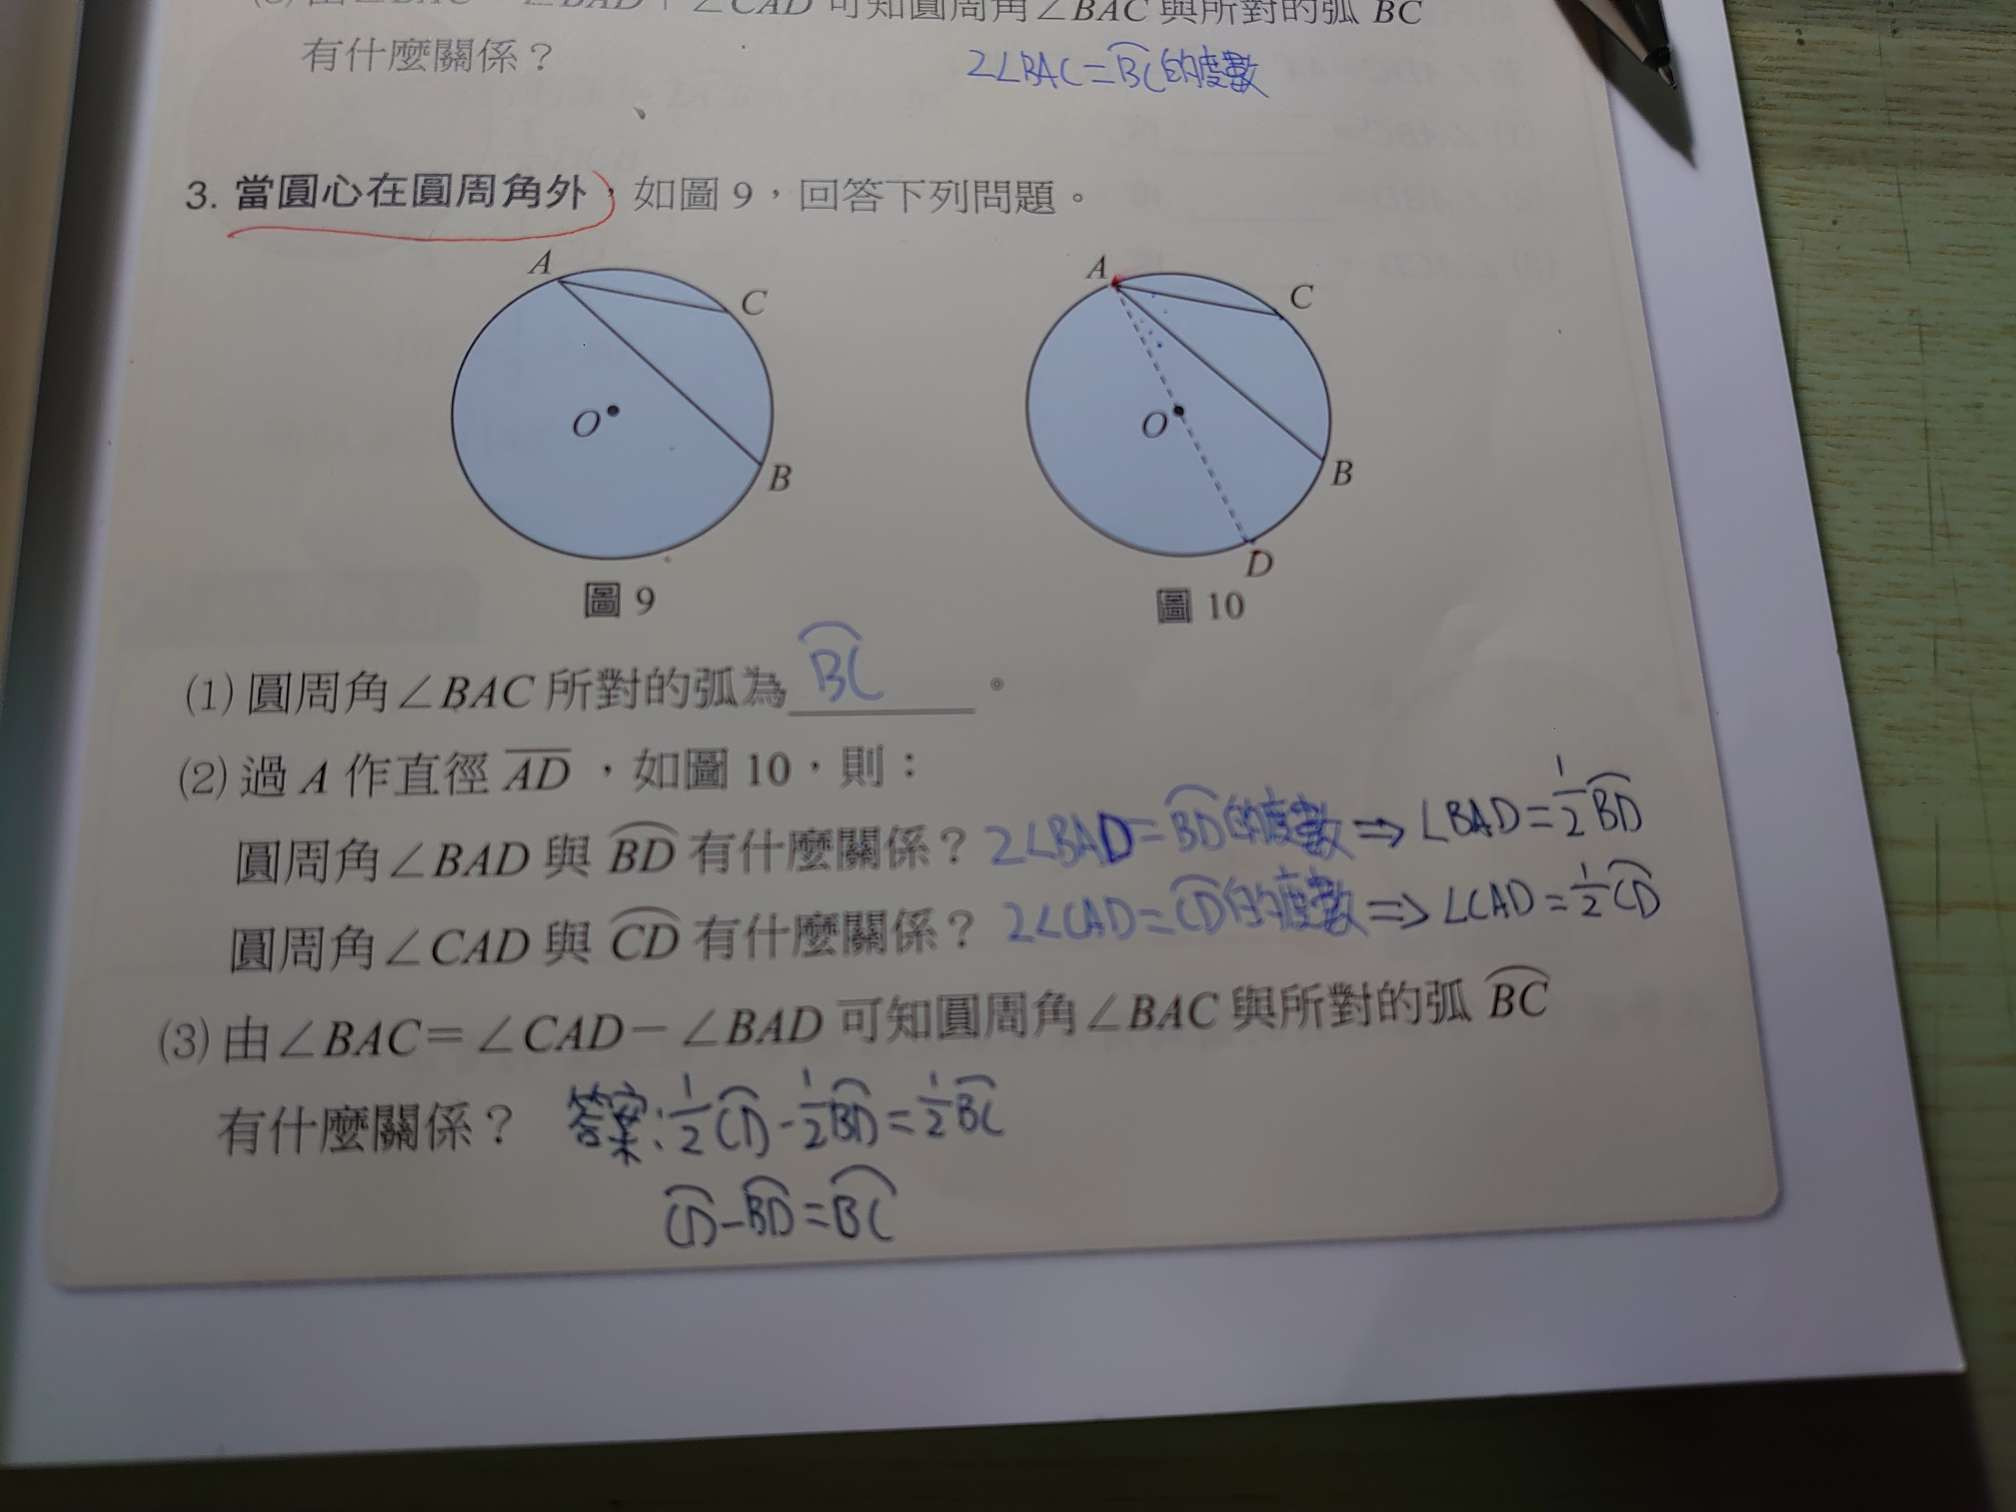 (3) 由∠BAC=∠BAD+∠CAD 可知圓周角∠BAC 與所對的弧 BC
有什麼關係？
2∠BAC=BC的度數
3. 當圓心在圓周角外，如圖 9，回答下列問題。
A
C
O
B
圖 9
A
C
O
B
D
圖 10
(1) 圓周角∠BAC 所對的弧為 BC 。
(2) 過 A 作直徑 AD ，如圖 10，則：
圓周角∠BAD 與 BD 有什麼關係？ 2∠BAD=BD的度數⇒∠BAD=1/2 BD
圓周角∠CAD 與 CD 有什麼關係？ 2∠CAD=CD的度數⇒∠CAD=1/2 CD
(3) 由∠BAC=∠CAD-∠BAD 可知圓周角∠BAC 與所對的弧 BC
有什麼關係？ 答案:1/2 CD-1/2 BD=1/2 BC
CD-BD=BC